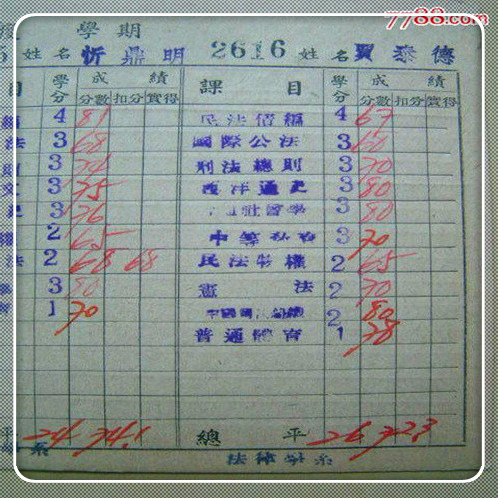 7788.com
學期
姓名 忻鼎明 2616 姓名 賈泰德
目 學分 成績 課目 學分 成績
分數 扣分 實得 分數 扣分 實得
4 81 民法債編 4 67
法 3 68 國際公法 3 60
則 3 74 刑法總則 3 70
3 75 西洋通史 3 80
史 3 76 社會學 3 80
權 2 65 中等 3 70
法 2 68 68 民法物權 2 65
3 80 憲法 2 70
1 70 2 80
普通體育 1 78
24 74.1 總平 26 72.3
系 法律學系